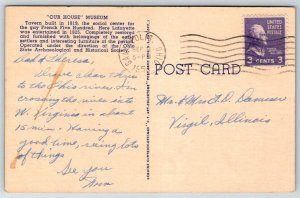 "OUR HOUSE" MUSEUM
Tavern built in 1819, the social center for
the gay French Five Hundred. Here Lafayette
was entertained in 1825. Completely restored
and furnished with belongings of the early
settlers and interesting furniture of the period.
Operated under the direction of the Ohio
State Archaeological and Historical Society.
POST CARD
3 CENTS 3
Dad & Theresa,
down
to the Ohio river. Am
crossing the river into
W. Virginia in about
15 min. Having a
good time, seeing lots
of things
See you
Mr. & Mrs F. D. Damisch
Virgil, Illinois